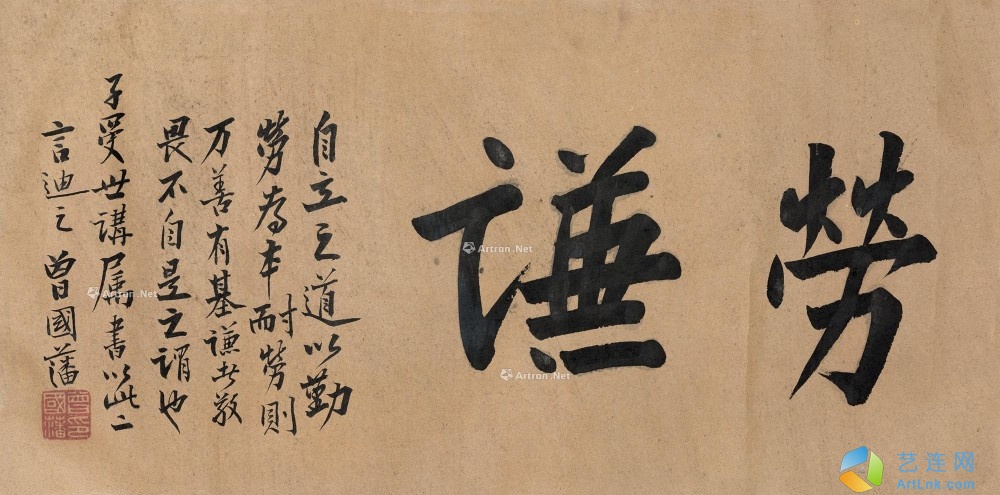 勞謙
自立之道以勤
勞為本耐勞則
万善有基謙者敬
畏不自是之謂也
子受世講属書以此二
言迪之曾國藩
曾國藩印
Artron.Net
Artron.Net
Artron.Net
艺连网
ArtLnk.com